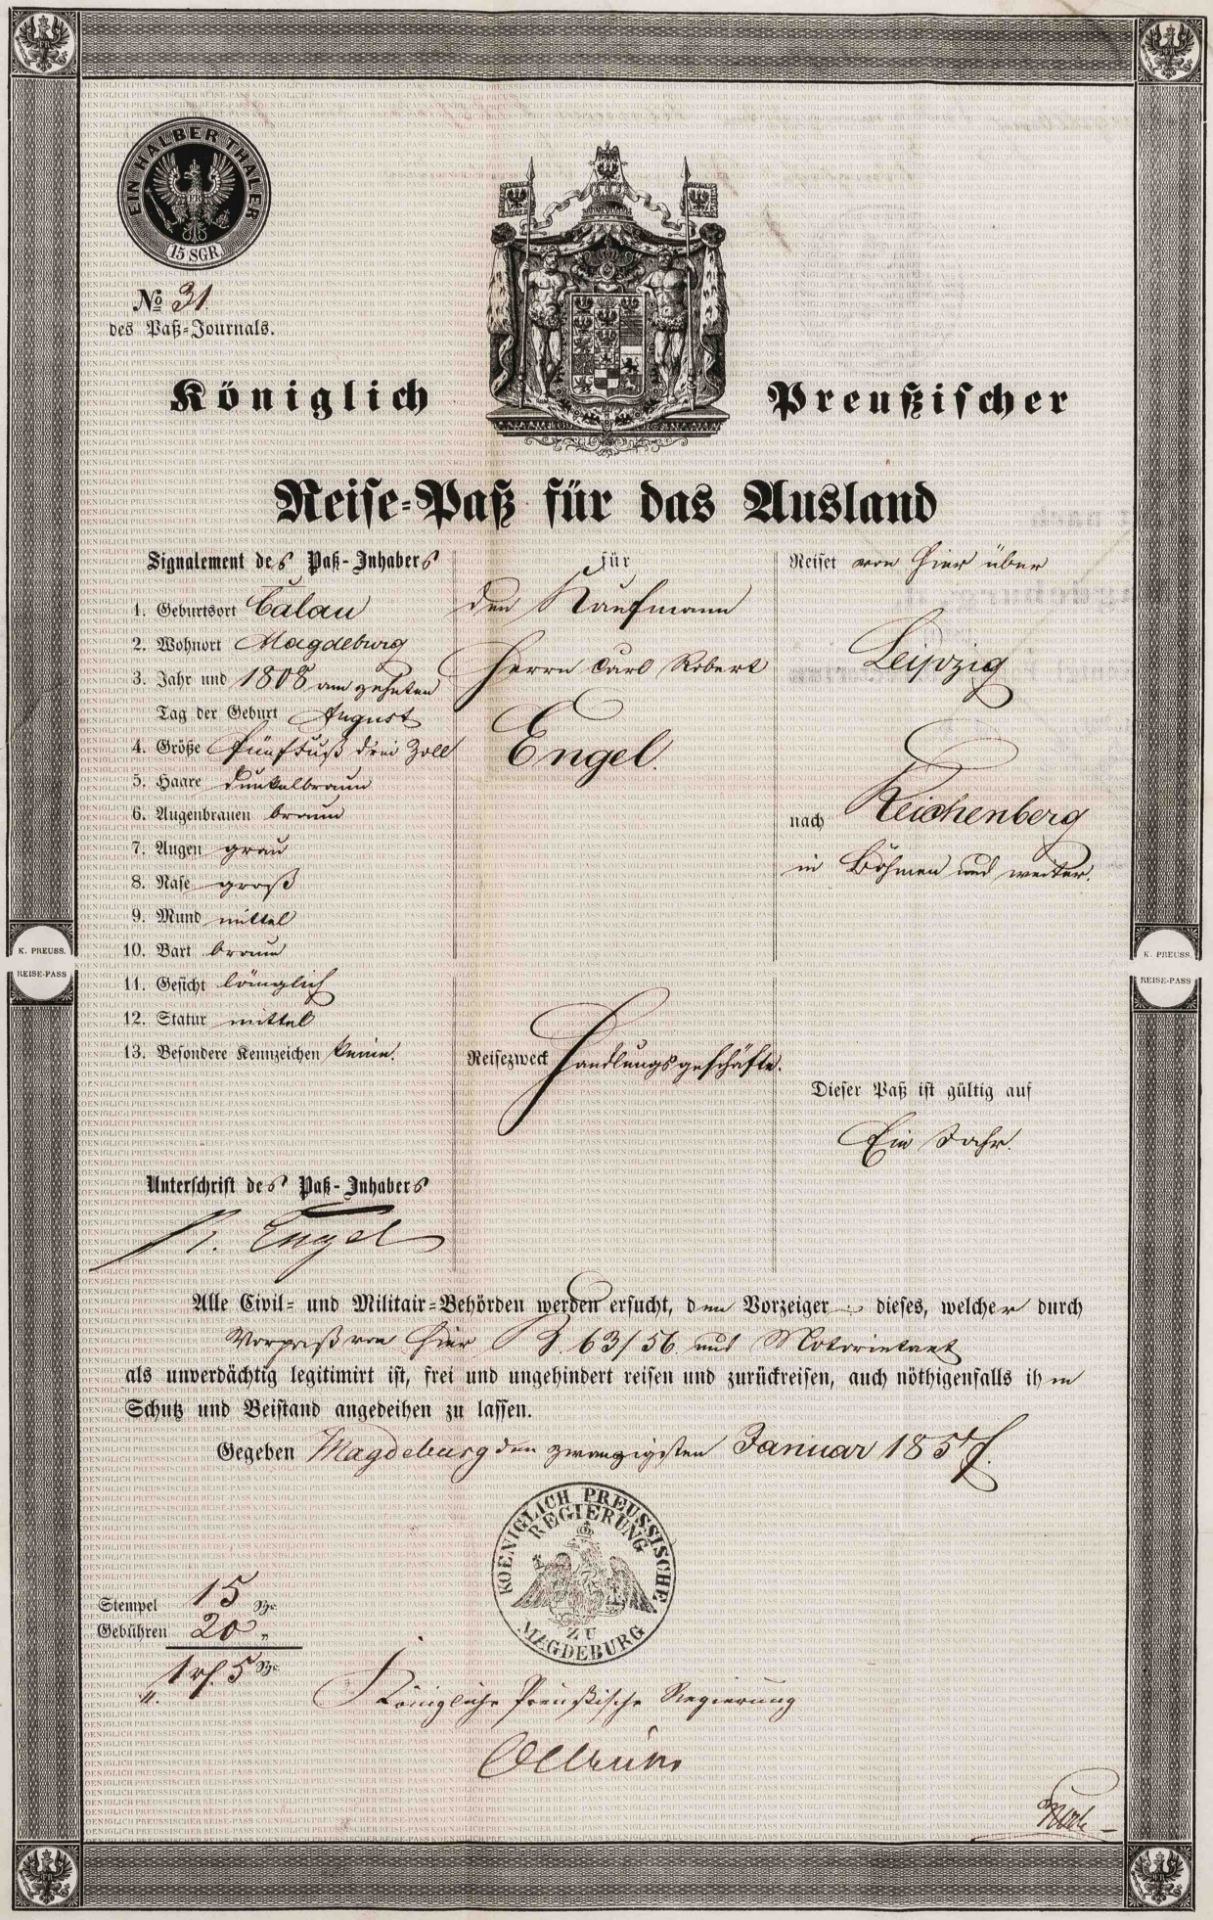 EIN HALBER THALER
15 SGR.
№ 31
des Paß-Journals.
Königlich Preußischer
Reise-Paß für das Ausland
Signalement des Paß-Inhabers
1. Geburtsort Calau
2. Wohnort Magdeburg
3. Jahr und 1808 am zehnten
Tag der Geburt August
4. Größe fünf Fuß drei Zoll
5. Haare dunkelbraun
6. Augenbrauen braun
7. Augen grau
8. Nase groß
9. Mund mittel
10. Bart braun
11. Gesicht länglich
12. Statur mittel
13. Besondere Kennzeichen keine.
Unterschrift des Paß-Inhabers
Engel
für
den Kaufmann
Herrn Carl Robert
Engel.
Reisezweck Handlungsgeschäfte.
Reiset von hier über
Leipzig
nach Reichenberg
in Böhmen und weiter.
Dieser Paß ist gültig auf
Ein Jahr.
K. PREUSS.
REISE-PASS
K. PREUSS.
REISE-PASS
Alle Civil- und Militair-Behörden werden ersucht, den Vorzeiger dieses, welcher durch
von hier 63/56 und
als unverdächtig legitimirt ist, frei und ungehindert reisen und zurückreisen, auch nöthigenfalls ihm
Schutz und Beistand angedeihen zu lassen.
Gegeben Magdeburg den zwanzigsten Januar 1857.
KOENIGLICH PREUSSISCHE
REGIERUNG
ZU
MAGDEBURG
Stempel 15 Sgr.
Gebühren 20 "
1 rf. 5 Sgr.
Königliche Preußische Regierung